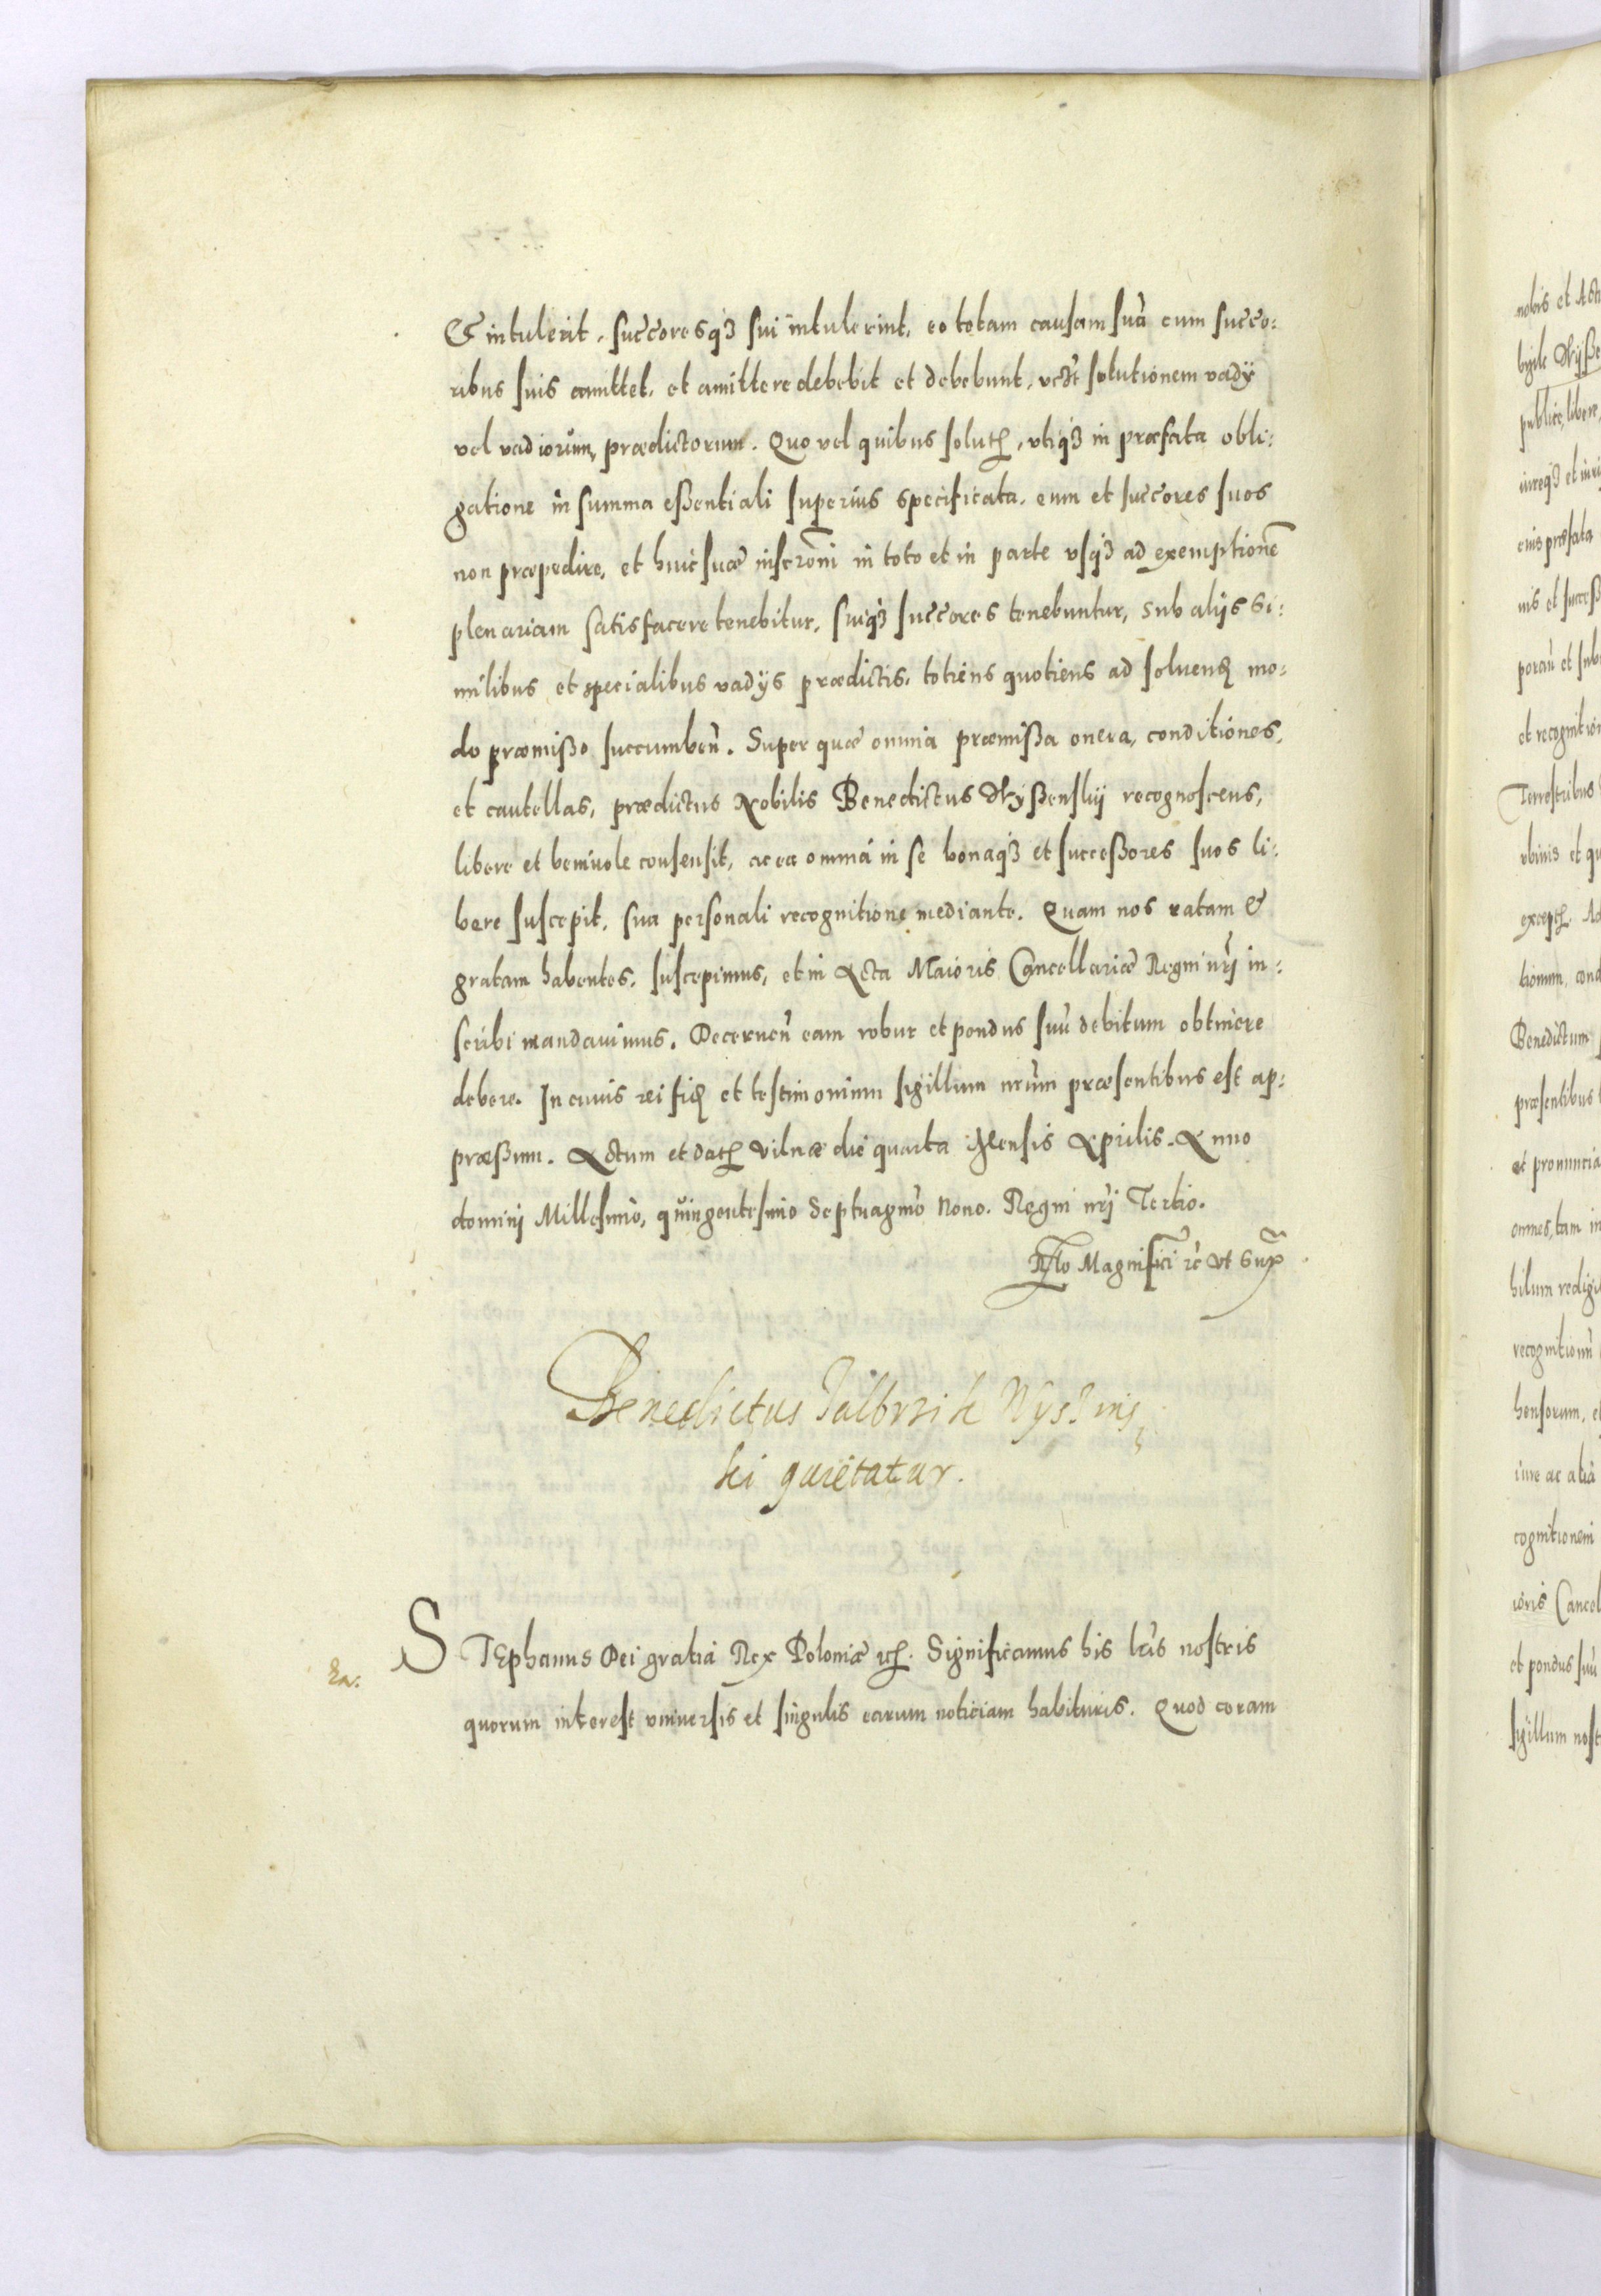 & intulerit, succoresqꝫ sui intulerint, eo totam causam suã cum succo:
ribus suis amittet, et amittere debebit et debebunt, vĩdt solutionem vadÿ
vel vadiorum, prædictorum. Quo vel quibus soluty, utiqꝫ in præfata obli:
gatione in summa eßentiali superius specificata, eum et succores suos
non præpedire, et huic suæ inscroni in toto et in parte vsqꝫ ad exemptionẽ
plenariam satisfacere tenebitur, suiqꝫ succores tenebuntur, sub alijs si:
milibus et specialibus vadÿs prædictis, totiens quotiens ad soluenđ mo:
do præmißo succumbeñ. Super quæ omnia præmißa onera, conditiones,
et cautellas, prædictus Nobilis Benedictus Wÿßenskij recognoscens,
libere et beniuole consensit, ac ea omnia in se bonaqꝫ et succeßores suos li:
bere suscepit, sua personali recognitione mediante. Quam nos ratam &
gratam habentes, suscepimus, et in Acta Maioris Cancellariæ Regni nri in:
scribi mandauimus. Decerneñ eam robur et pondus suũ debitum obtinere
debere. In cuius rei fiđ et testimonium sigillum nrum præsentibus est ap:
præßum. Actum et daty Vilnæ die quarta Mensis Aprilis. Anno
domini Millesimo, quingentesimo Septuagmo Nono. Regni nri Tertio.
Rlo Magnifici &c vt Supr
Benedictus Jalbrzik Wyszins
ki quietatur.
Ex.
STEphanus Dei gratia Rex Poloniæ &c. Significamus his lris nostris
quorum interest vniuersis et singulis earum noticiam habituris. Quod coram
nobis et Act
publice, libere,
eius præfata
et recognition
Terrestribus
Benedictum
præsentibus
et pronuncia
omnes, tam in
hilum redigi
cognitionem
ioris Cancel
et pondus suũ
sigillum nost